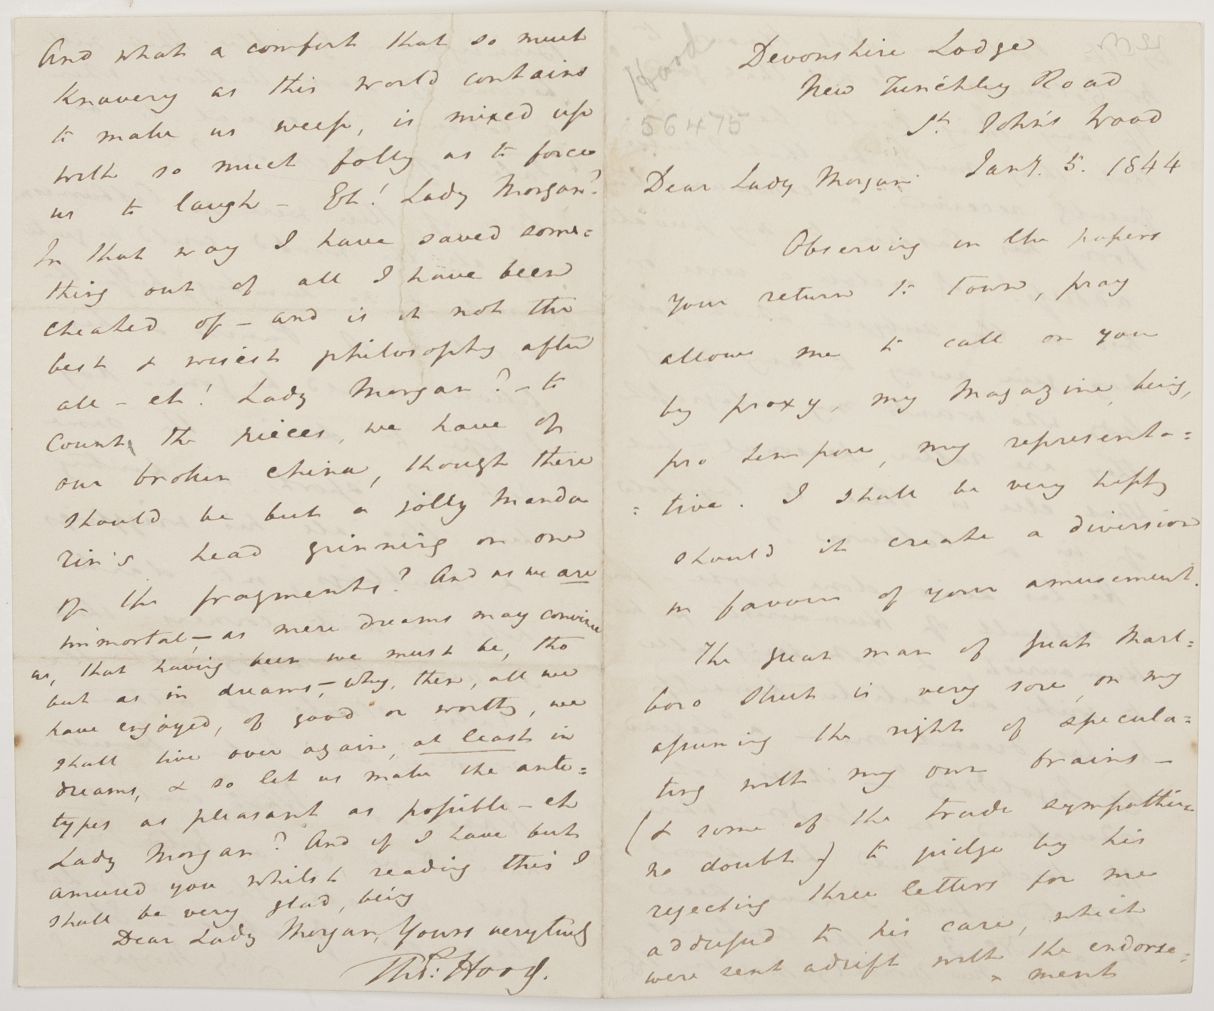 Hood
56475
Devonshire Lodge
New Finchley Road
St John's Wood
Jany. 5. 1844
Dear Lady Morgan
Observing in the papers
your return to town, pray
allow me to call on you
by proxy, my Magazine, being,
pro tempore, my representa=
=tive. I shall be very happy
should it create a diversion
in favour of your amusement.
The great man of Great Marl=
boro Street is very sore, on my
assuming the right of specula=
ting with my own brains —
(& some of the trade sympathize
no doubt) to judge by his
rejecting three letters for me
addressed to his care, which
were sent adrift with the endorse=
ment
And what a comfort that so much
knavery as this world contains
to make us weep, is mixed up
with so much folly as to force
us to laugh — Eh! Lady Morgan?
In that way I have saved some=
thing out of all I have been
cheated of — and is it not the
best & wisest philosophy after
all — eh! Lady Morgan? — to
count the pieces, we have of
our broken china, though there
should be but a jolly Manda
rin's head grinning on one
of the fragments? And as we are
immortal, — as mere dreams may convince
us, that having been we must be, tho
but as in dreams, — why, then, all we
have enjoyed, of good or worthy, we
shall live over again, at least in
dreams, & so let us make the ante=
types as pleasant as possible — eh
Lady Morgan? And if I have but
amused you whilst reading this I
shall be very glad, being
Dear Lady Morgan, Yours very truly
Thos: Hood.